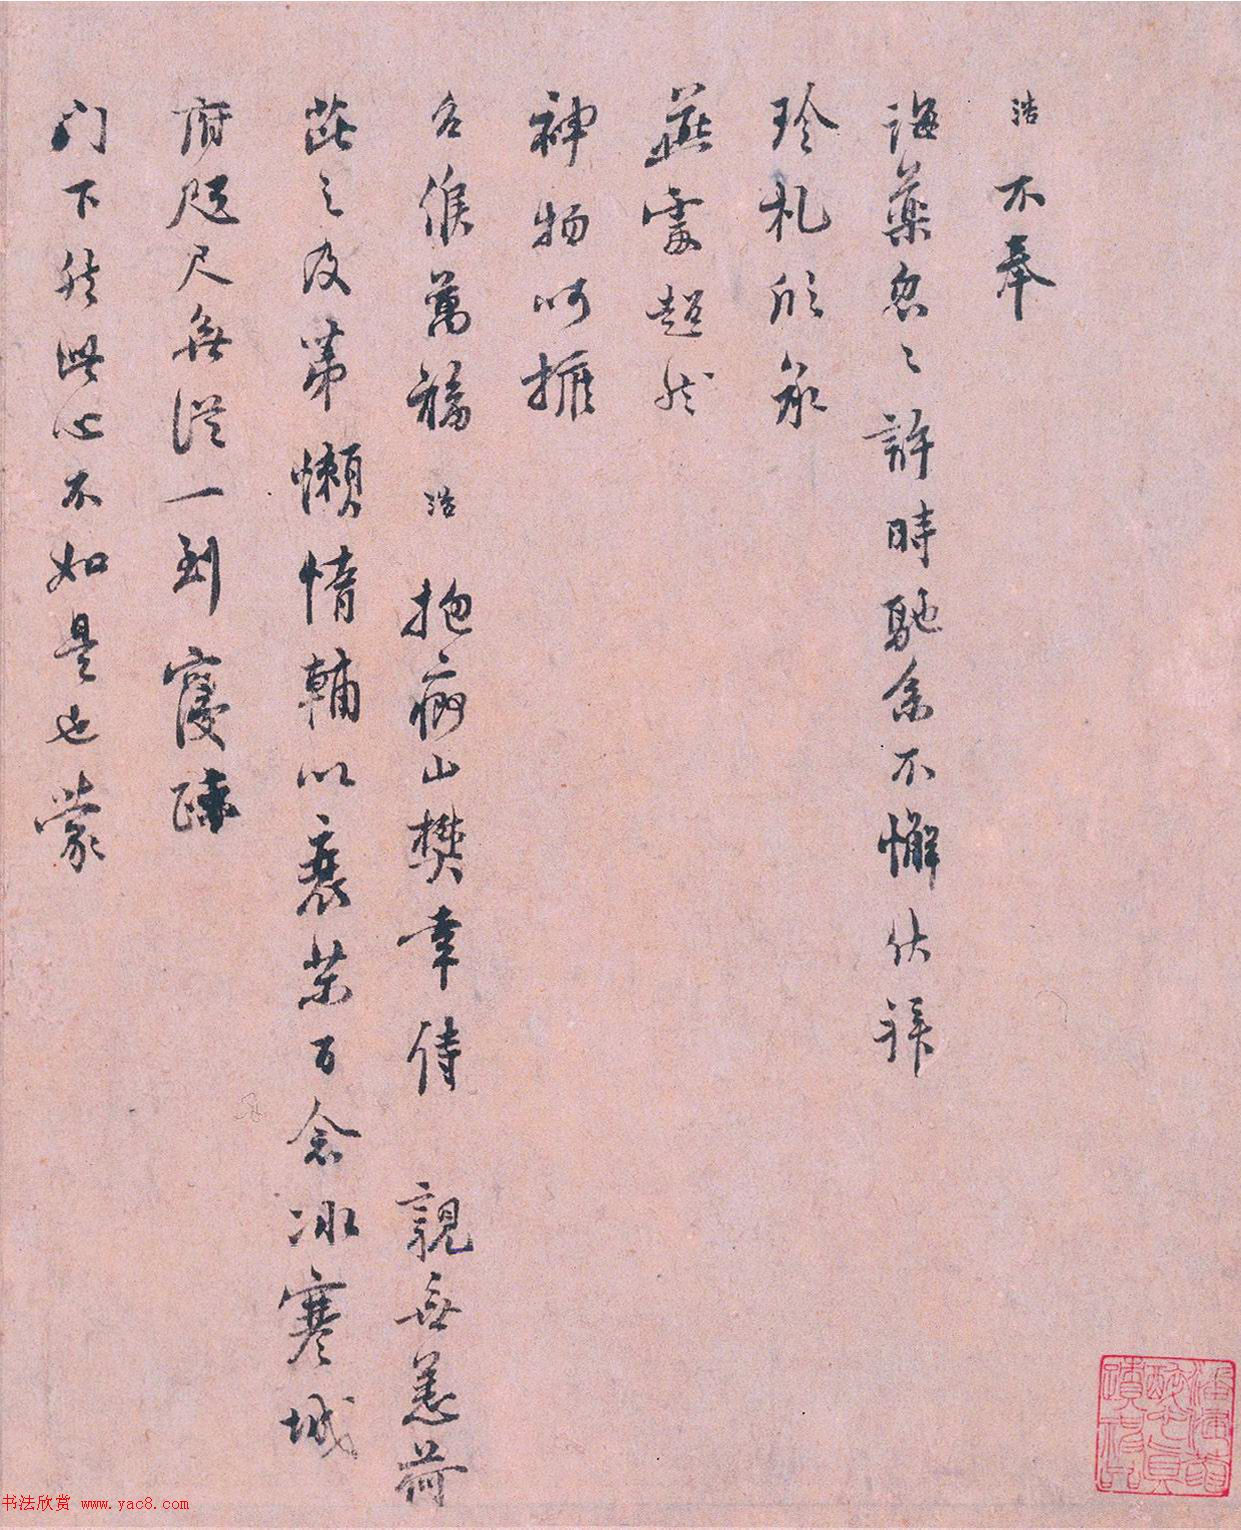 浩不奉
誨藥忽〻許時馳企不懈伏辱
珍札欣承
燕處超然
神物呵擁
台候萬福浩抱痾山樊幸侍親無恙荷
芘之及第懶惰輔以衰茶百念冰寒城
府咫尺無從一到寢
门下然此心不如是也蒙
书法欣赏 www.yac8.com